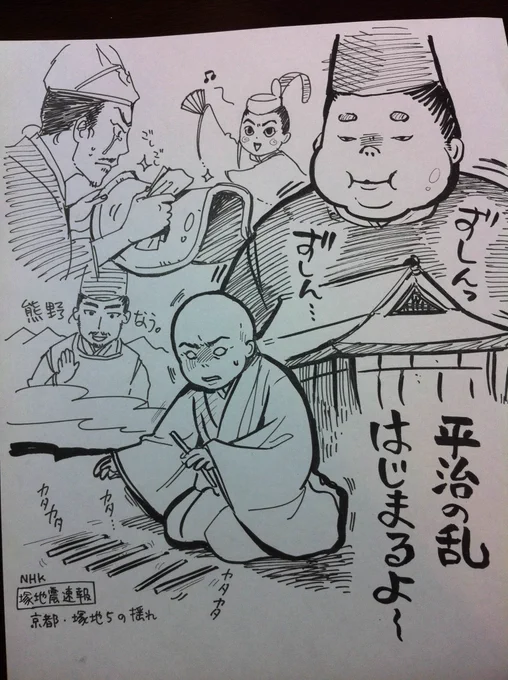 ごしごし
ずしんっ
ずしん…
熊野
なう。
平治の乱
はじまるよ〜
カタカタ
カタカタ
カタカタ
NHK
塚地震速報
京都・塚地5の揺れ